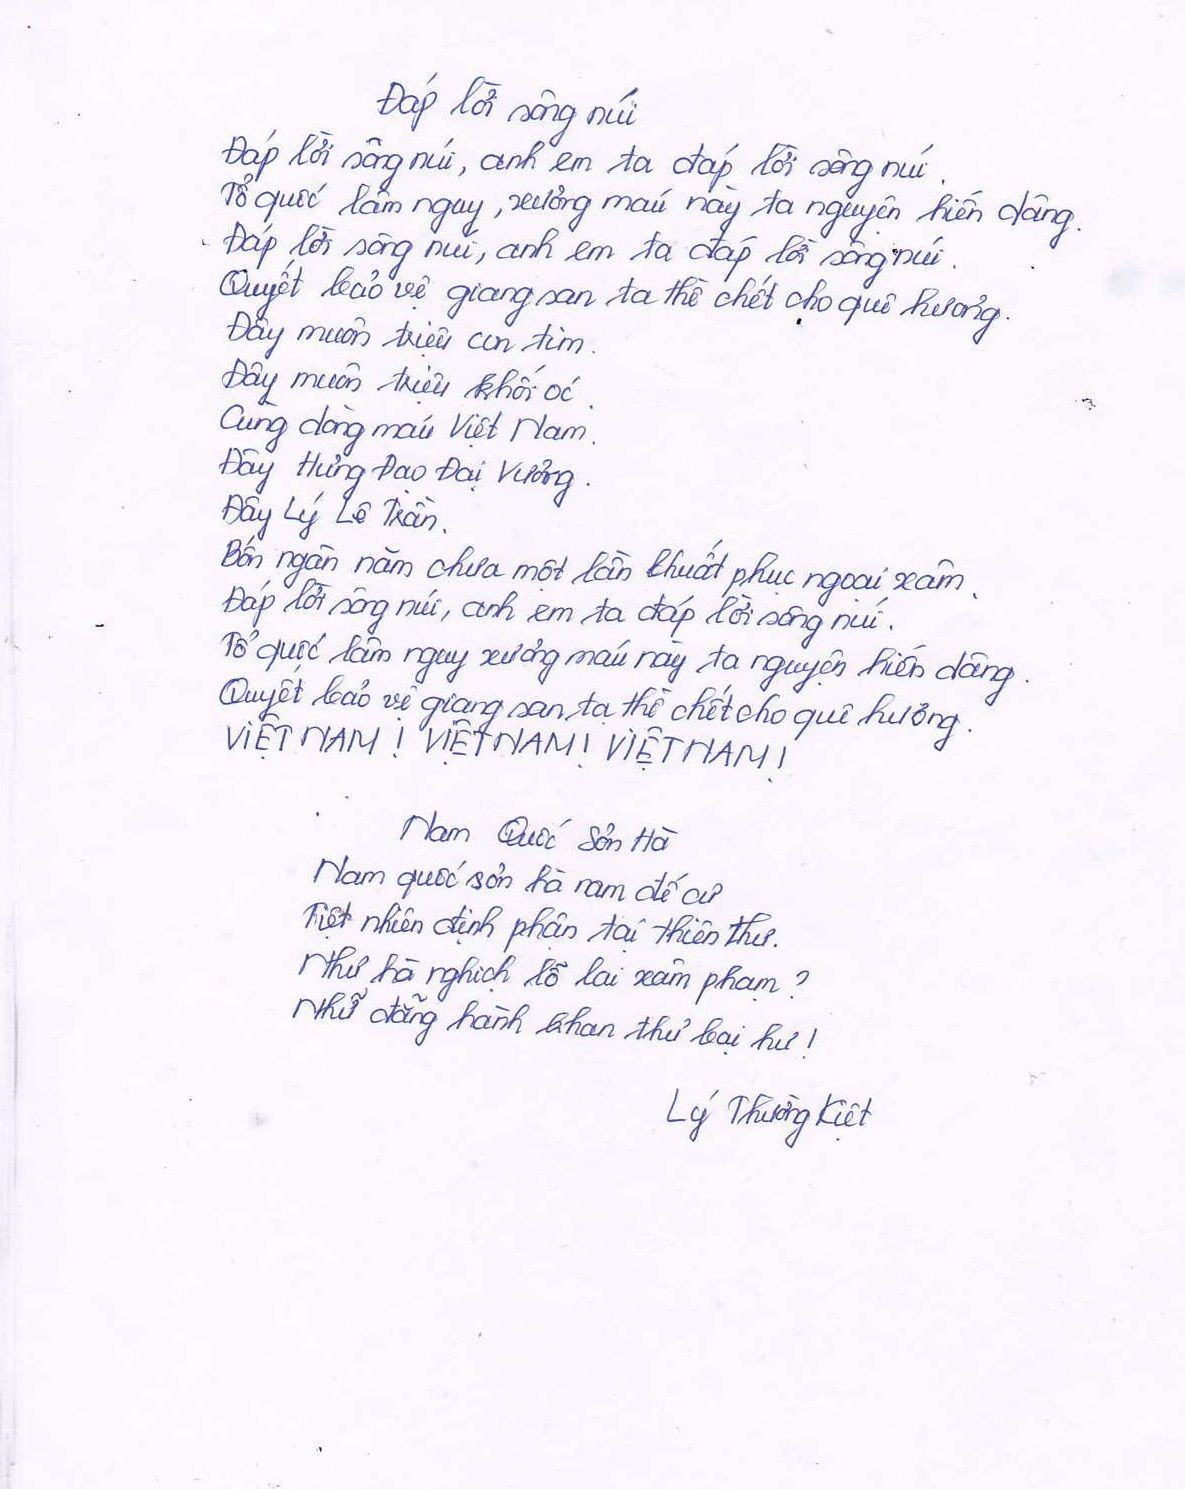 Đáp lời sông núi
Đáp lời sông núi, anh em ta đáp lời sông núi.
Tổ quốc lâm nguy, xương máu này ta nguyện hiến dâng.
Đáp lời sông núi, anh em ta đáp lời sông núi.
Quyết bảo vệ giang san ta thề chết cho quê hương.
Đây muôn triệu con tim.
Đây muôn triệu khối óc.
Cùng dòng máu Việt Nam.
Đây Hưng Đạo Đại Vương.
Đây Lý Lê Trần.
Bốn ngàn năm chưa một lần khuất phục ngoại xâm.
Đáp lời sông núi, anh em ta đáp lời sông núi.
Tổ quốc lâm nguy xương máu này ta nguyện hiến dâng.
Quyết bảo vệ giang san ta thề chết cho quê hương.
VIỆT NAM! VIỆT NAM! VIỆT NAM!
Nam Quốc Sơn Hà
Nam quốc sơn hà nam đế cư
Tiệt nhiên định phận tại thiên thư.
Như hà nghịch lỗ lai xâm phạm?
Nhữ đẵng hành khan thủ bại hư!
Lý Thường Kiệt